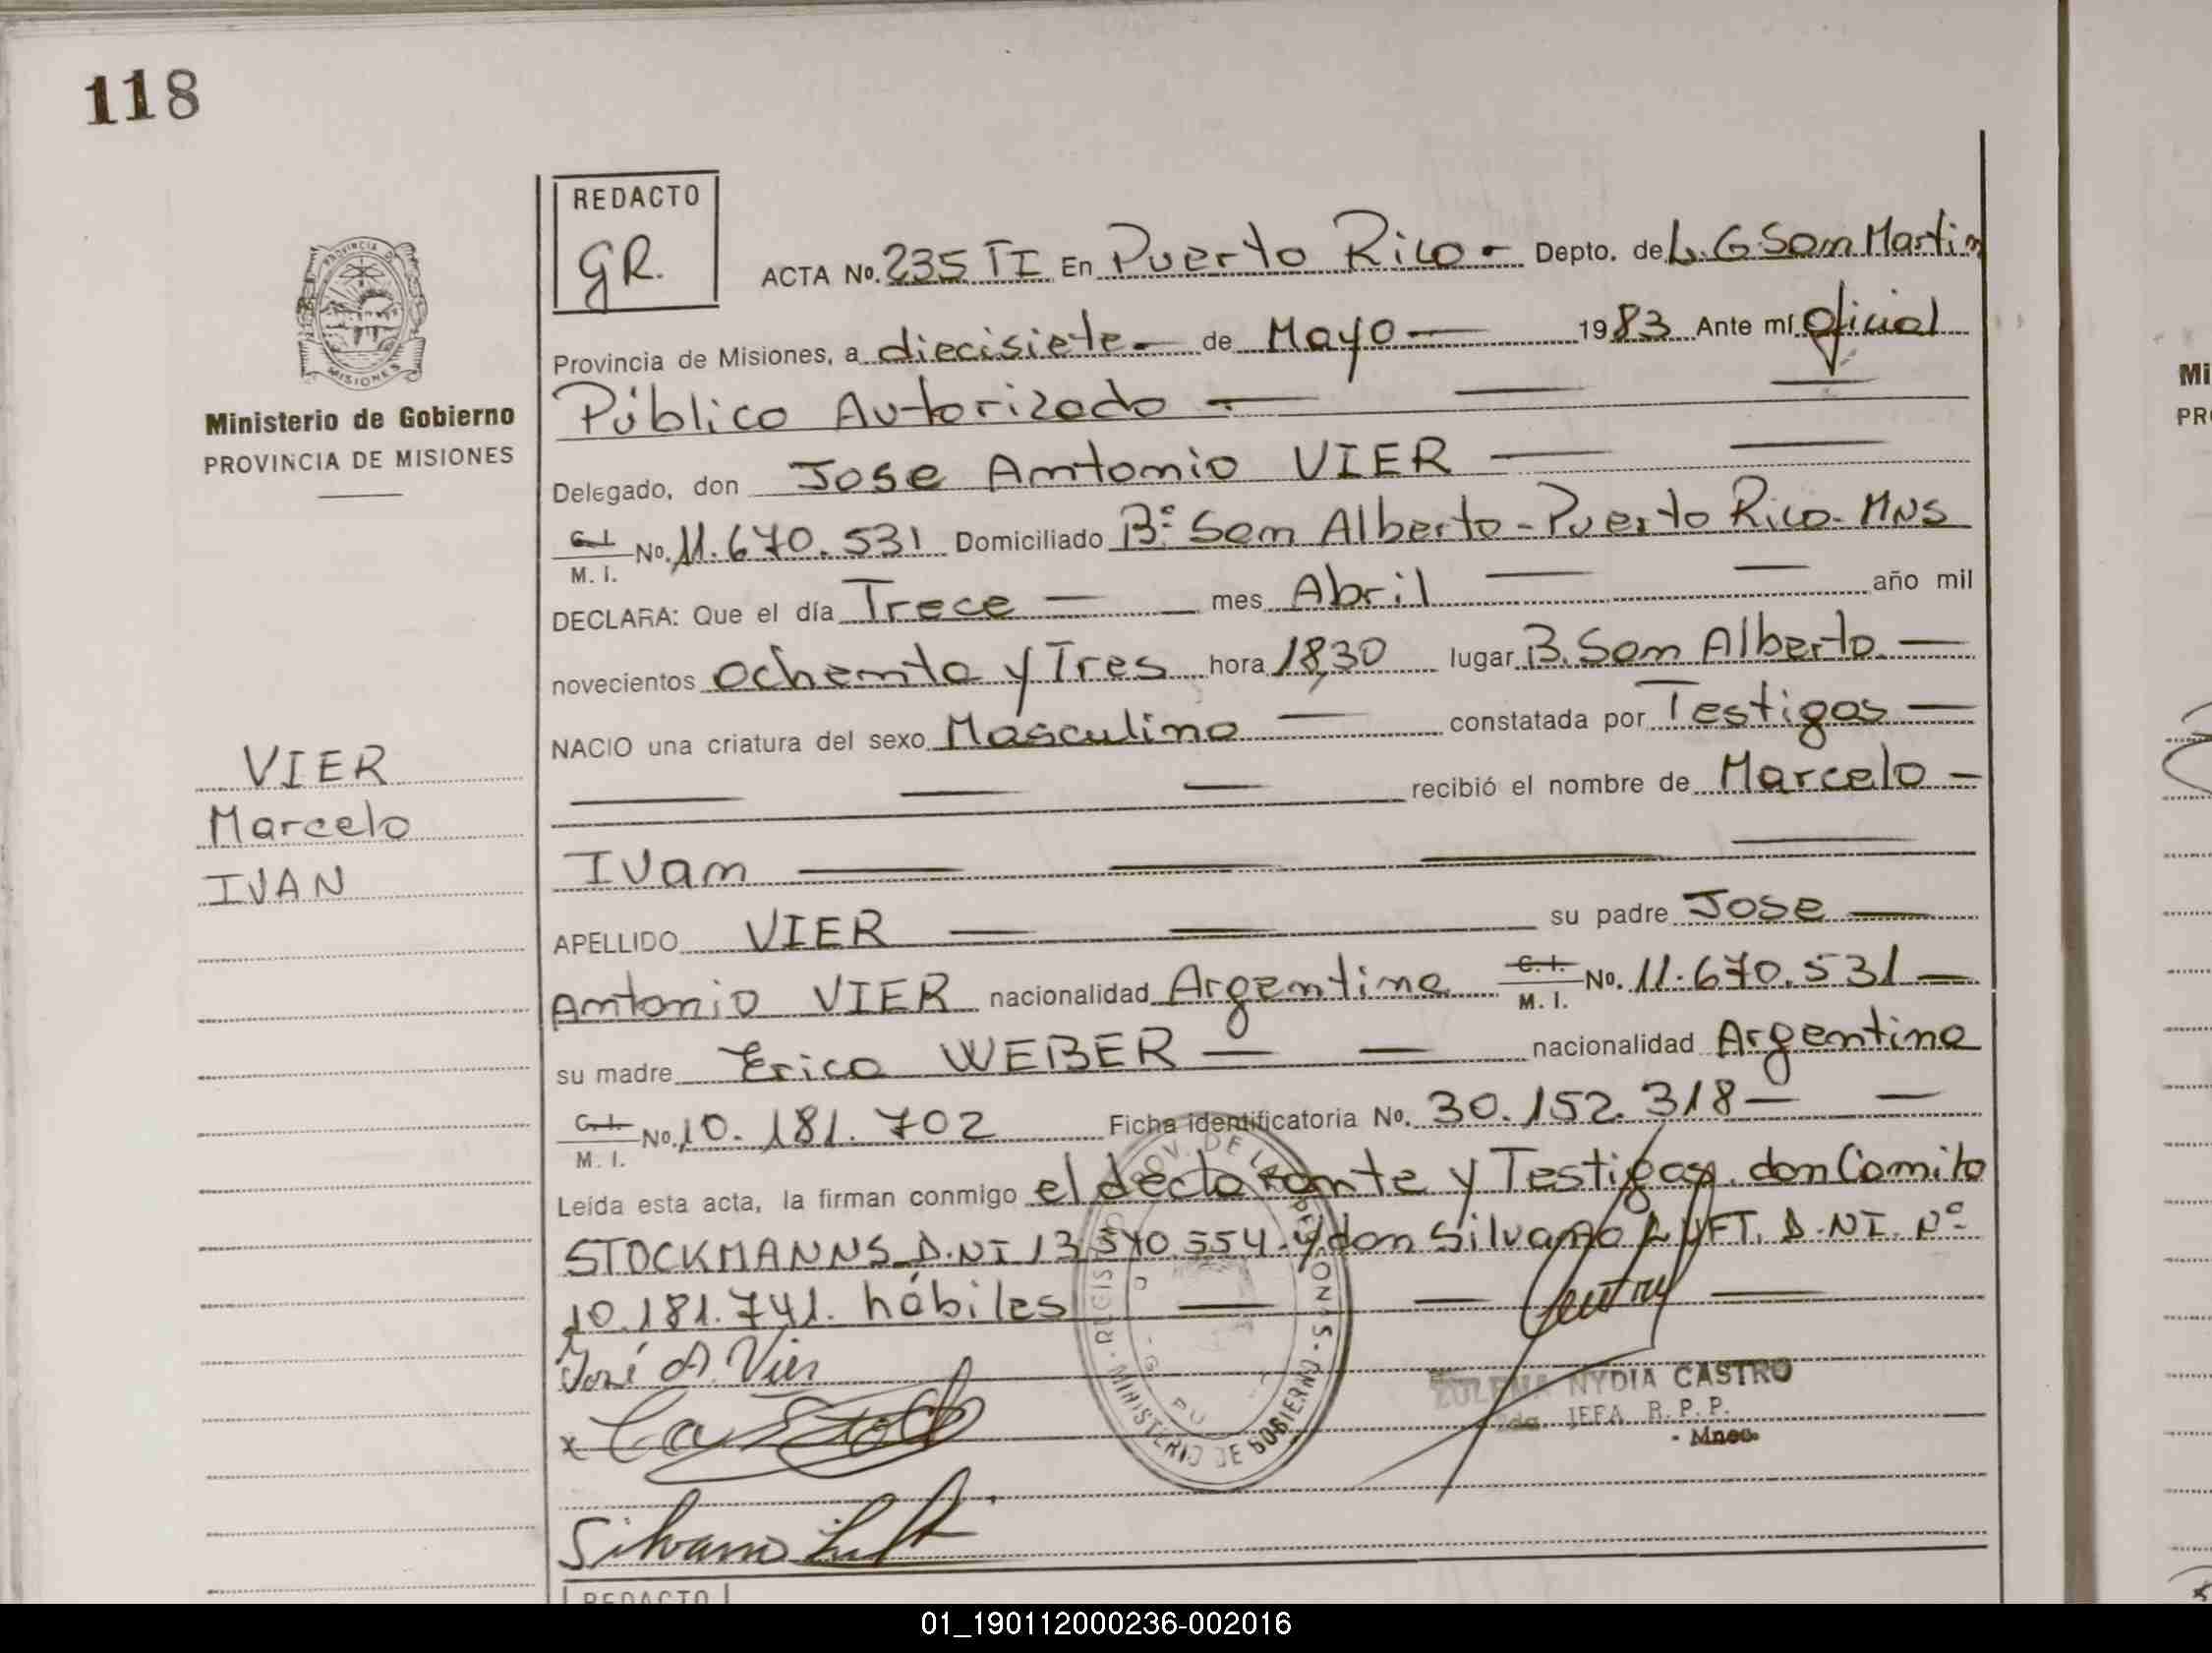 118
REDACTO
GR.
ACTA No. 235 TI En Puerto Rico - Depto. de L. G San Martin
Provincia de Misiones, a diecisiete - de Mayo - 1983 Ante mí Oficial
Público Autorizado
PROVINCIA DE
MISIONES
Ministerio de Gobierno
PROVINCIA DE MISIONES
Delegado, don Jose Antonio VIER
C. I.
M. I. No. 11.670.531 Domiciliado B° San Alberto - Puerto Rico - MNS
DECLARA: Que el día Trece mes Abril año mil
novecientos ochenta y Tres hora 18,30 lugar B. San Alberto
NACIO una criatura del sexo Masculino constatada por Testigos
recibió el nombre de Marcelo
Ivan
VIER
Marcelo
IVAN
APELLIDO VIER su padre Jose
Antonio VIER nacionalidad Argentina C. I. M. I. No. 11.670.531
su madre Erica WEBER nacionalidad Argentina
C. I.
M. I. No. 10.181.702 Ficha identificatoria No. 30.152.318
Leída esta acta, la firman conmigo el declarante y Testigos. don Camilo
STOCKMANNS D.NI 13.570.554 y don Silvano LUFT. D.NI. N°
10.181.741. hábiles
José A. Vier
Silvano Luft
ZULENA NYDIA CASTRO
2da. JEFA R. P. P.
- Mnes.
MINISTERIO DE GOBIERNO
REDACTO
Mi
PR
01_190112000236-002016